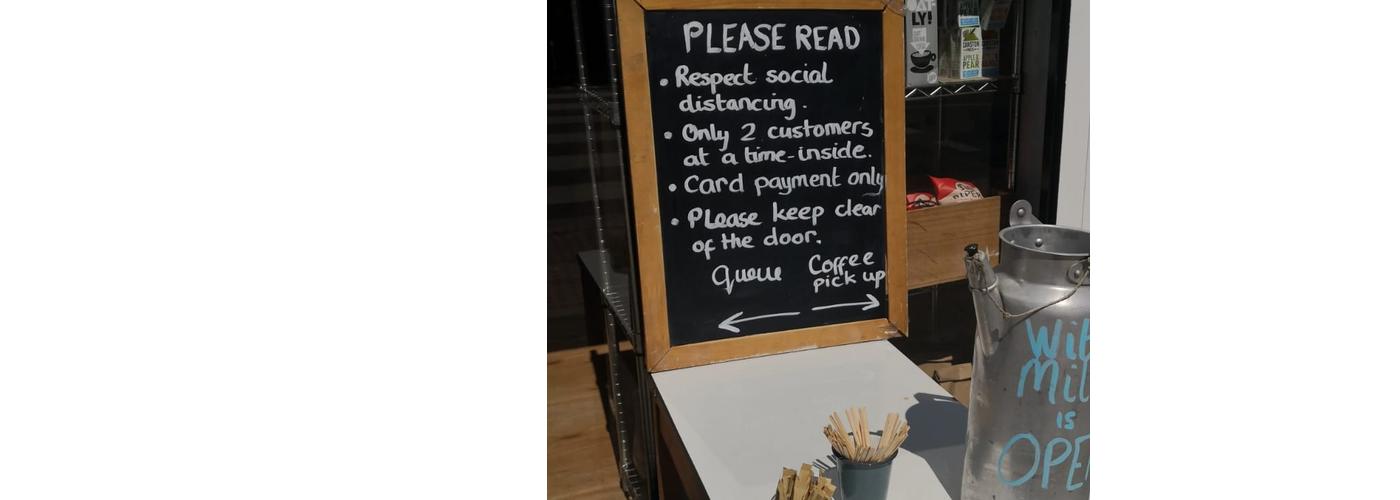 PLEASE READ
• Respect social
distancing.
• Only 2 customers
at a time-inside.
• Card payment only
• Please keep clear
of the door.
Queue
Coffee
pick up
OAT-
LY!
APPLE &
PEAR
Mil
is
OPE